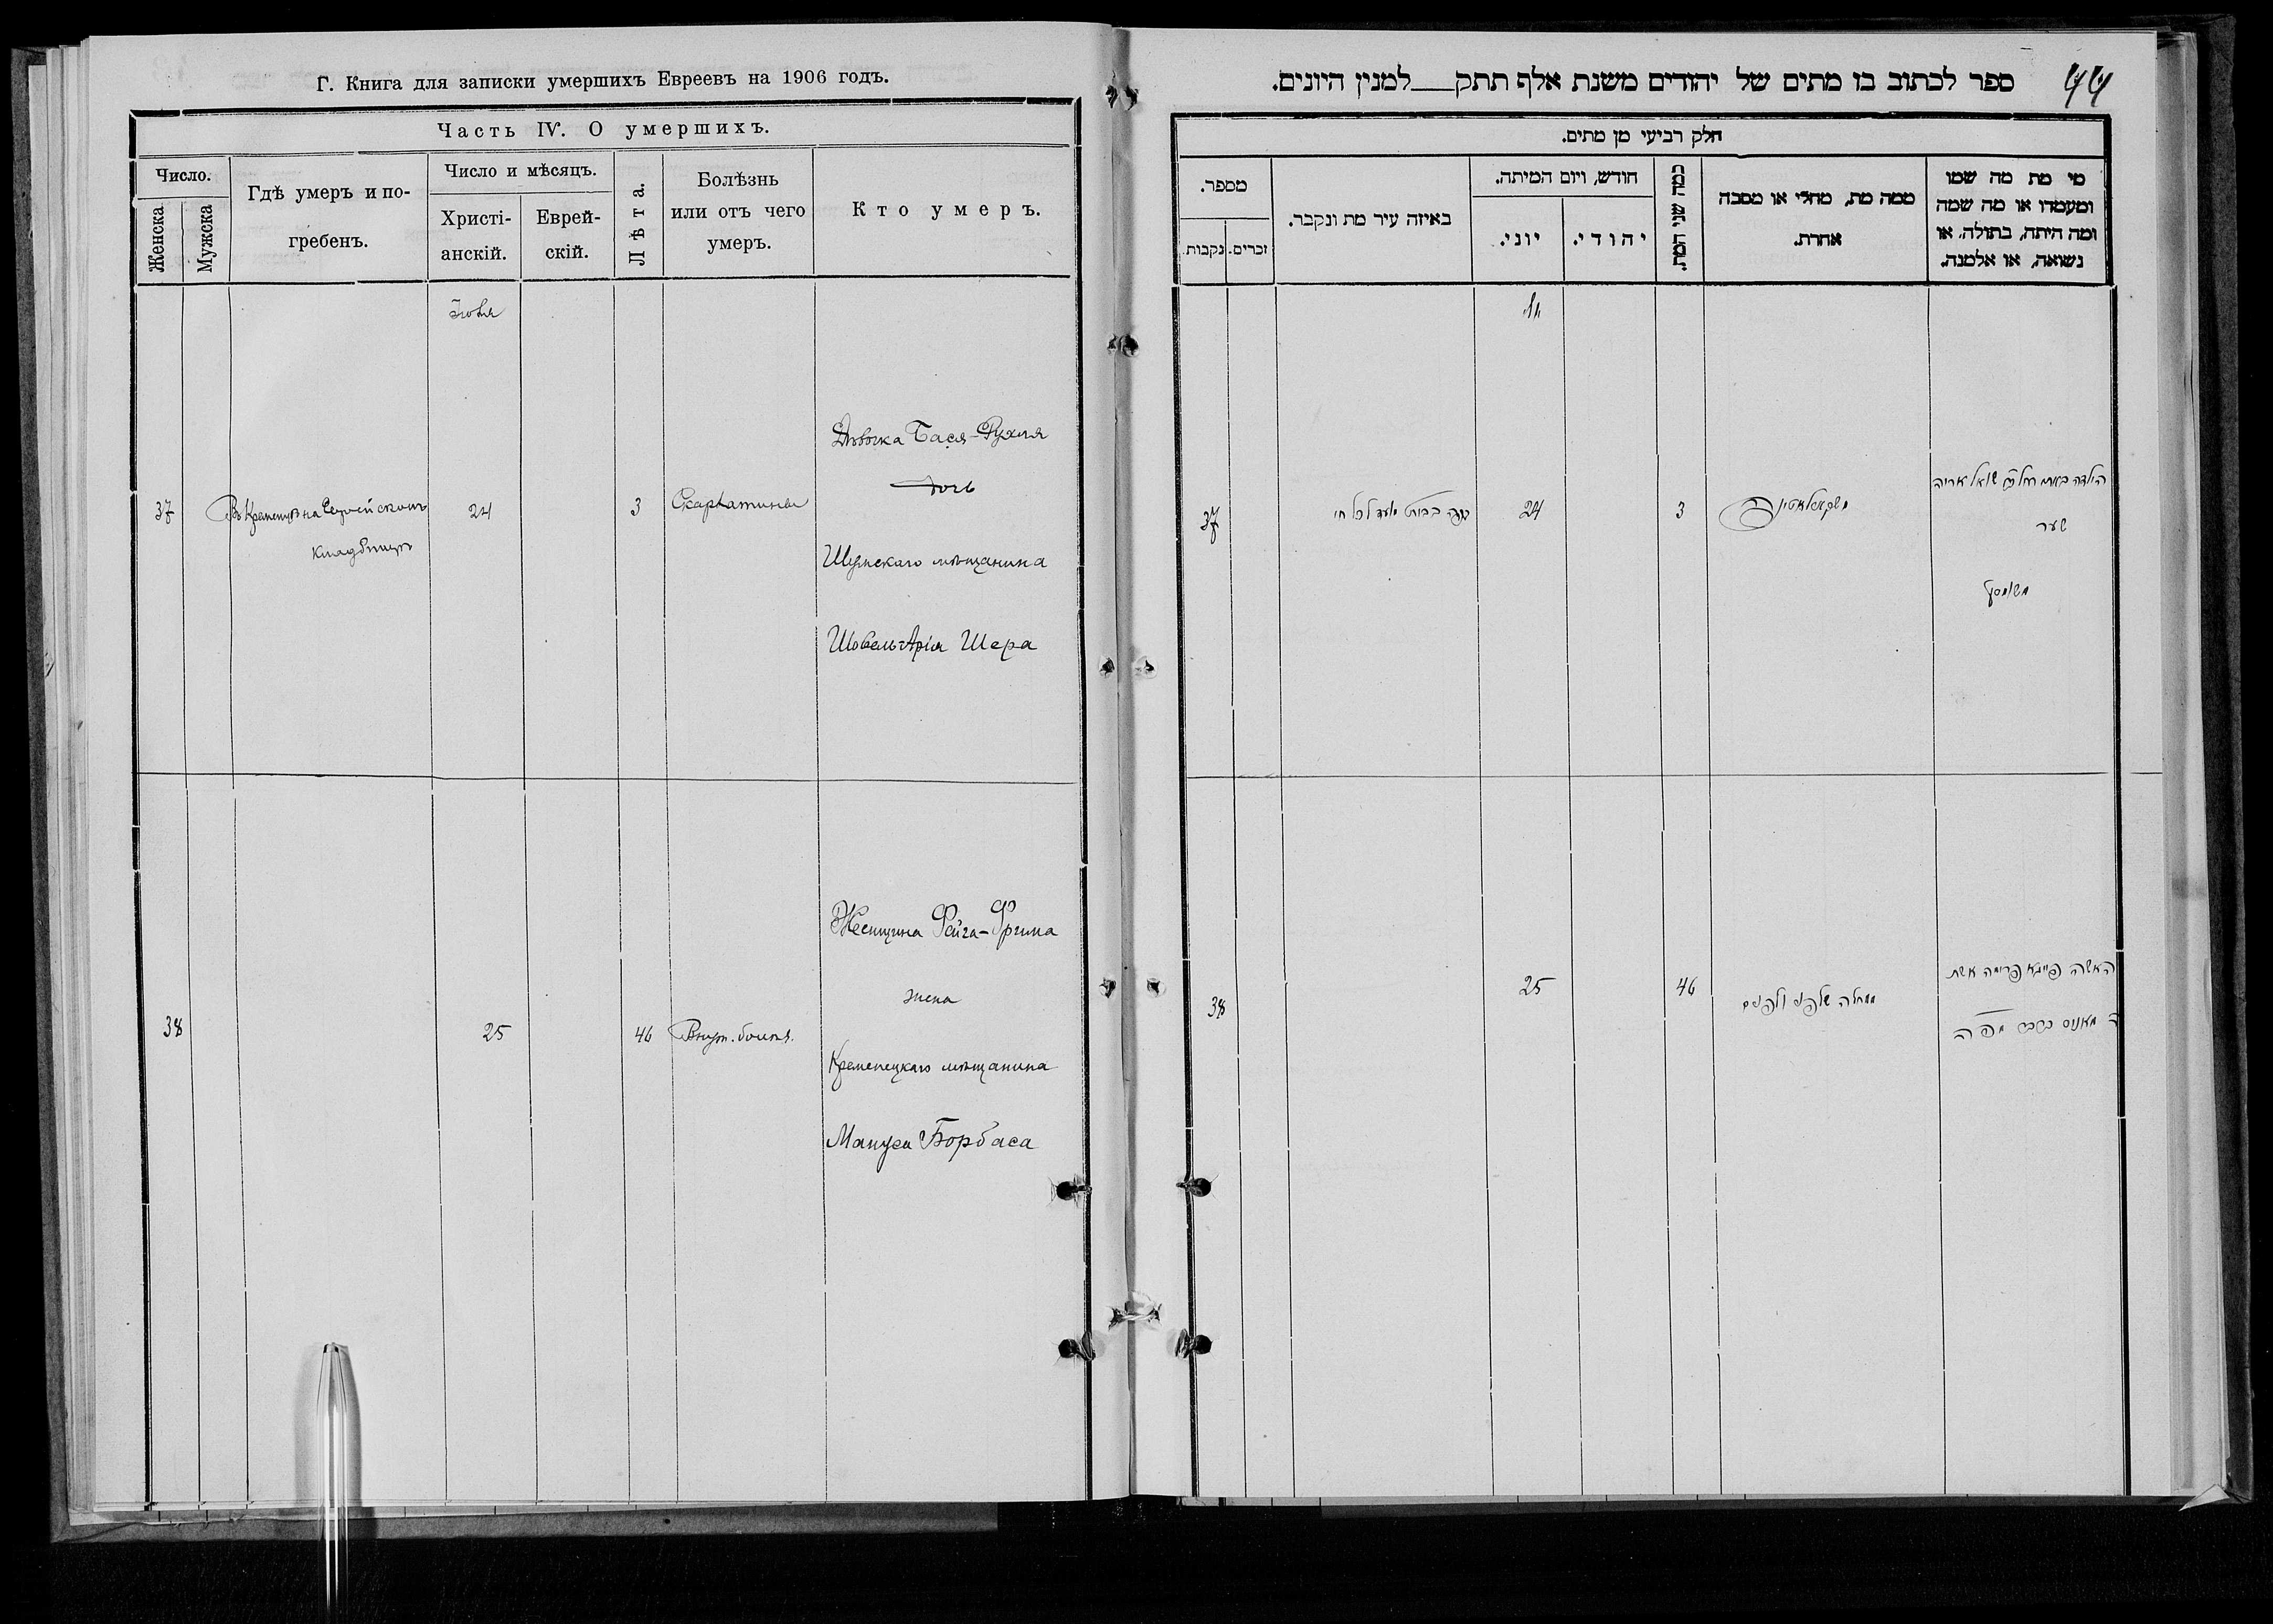 Г. Книга для записки умершихъ Евреевъ на 1906 годъ.
Часть IV. О умершихъ.
Число.
Женска
Мужска
Гдѣ умеръ и по-
гребенъ.
Число и мѣсяцъ.
Христі-
анскій.
Еврей-
скій.
Лѣта.
Болѣзнь
или отъ чего
умеръ.
Кто умеръ.
Іюня
37
Въ Кременцѣ на Еврейскомъ
кладбищѣ
24
3
Скарлатины
Дѣвочка Бася-Рухля
дочь
Шумскаго мѣщанина
Шовель-Арія Шера
38
25
46
Внутр. болѣз.
Женщина Фейга-Фрима
жена
Кременецкаго мѣщанина
Мануса Борбаса
44
ספר לכתוב בו מתים של יהודים משנת אלף תתק למנין היונים.
חלק רביעי מן מתים.
מספר.
נקבות
זכרים.
באיזה עיר מת ונקבר.
חודש, ויום המיתה.
יוני.
יהודי.
כמה שני המת.
ממה מת, מחלי או מסבה
אחרת.
מי מת מה שמו
ומעמדו או מה שמה
ומה היתה, בתולה, או
נשואה, או אלמנה.
37
24
3
הילדה
שער
38
25
46
האשה פייגא פרימה אשת